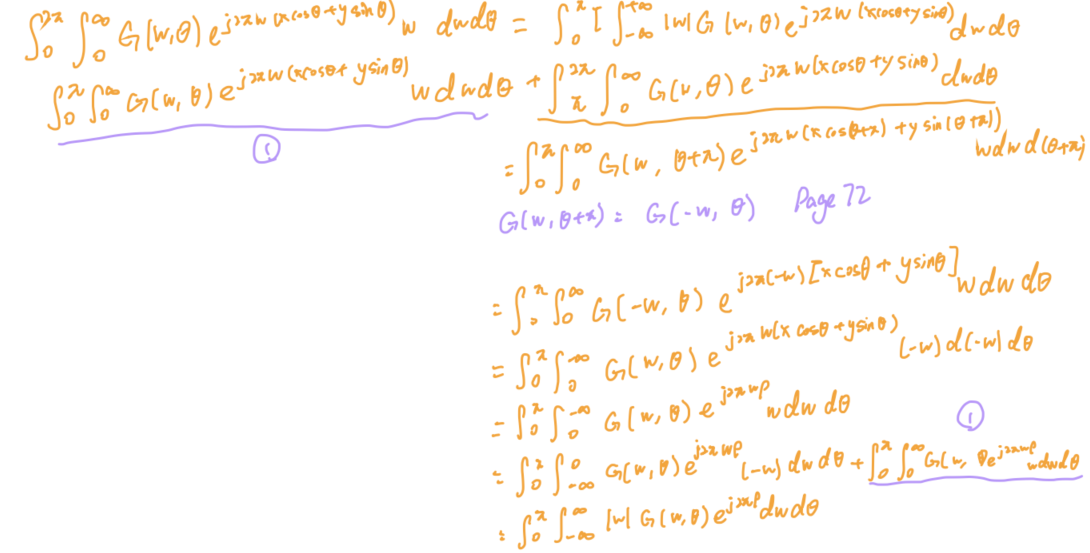 ∫₀^{2π} ∫₀^∞ G(w,θ) e^{j2πw(xcosθ+ysinθ)} w dwdθ = ∫₀^π [ ∫_{-∞}^{+∞} |w| G(w,θ) e^{j2πw(xcosθ+ysinθ)} dwdθ
∫₀^π ∫₀^∞ G(w,θ) e^{j2πw(xcosθ+ysinθ)} wdwdθ + ∫_π^{2π} ∫₀^∞ G(w,θ) e^{j2πw(xcosθ+ysinθ)} dwdθ
①
= ∫₀^π ∫₀^∞ G(w, θ+π) e^{j2πw(xcos(θ+π)+ysin(θ+π))} wdwd(θ+π)
G(w,θ+π) = G(-w, θ) Page 72
= ∫₀^π ∫₀^∞ G(-w, θ) e^{j2π(-w)[xcosθ+ysinθ]} wdwdθ
= ∫₀^π ∫₀^{-∞} G(w,θ) e^{j2πw(xcosθ+ysinθ)} (-w)d(-w)dθ
= ∫₀^π ∫₀^{-∞} G(w,θ) e^{j2πwρ} wdwdθ
①
= ∫₀^π ∫_{-∞}^0 G(w,θ) e^{j2πwρ} (-w)dwdθ + ∫₀^π ∫₀^∞ G(w, θ e^{j2πwρ} wdwdθ
= ∫₀^π ∫_{-∞}^∞ |w| G(w,θ) e^{j2πρ} dwdθ